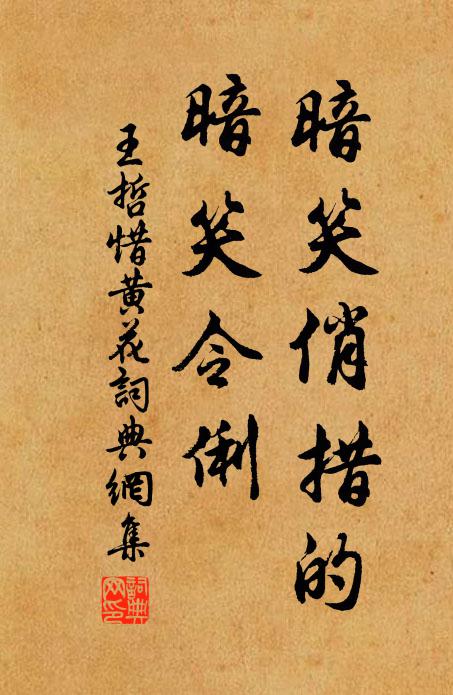 暗笑俏措的
暗笑令俐
王哲惜黄花詞典網集
詞典網印